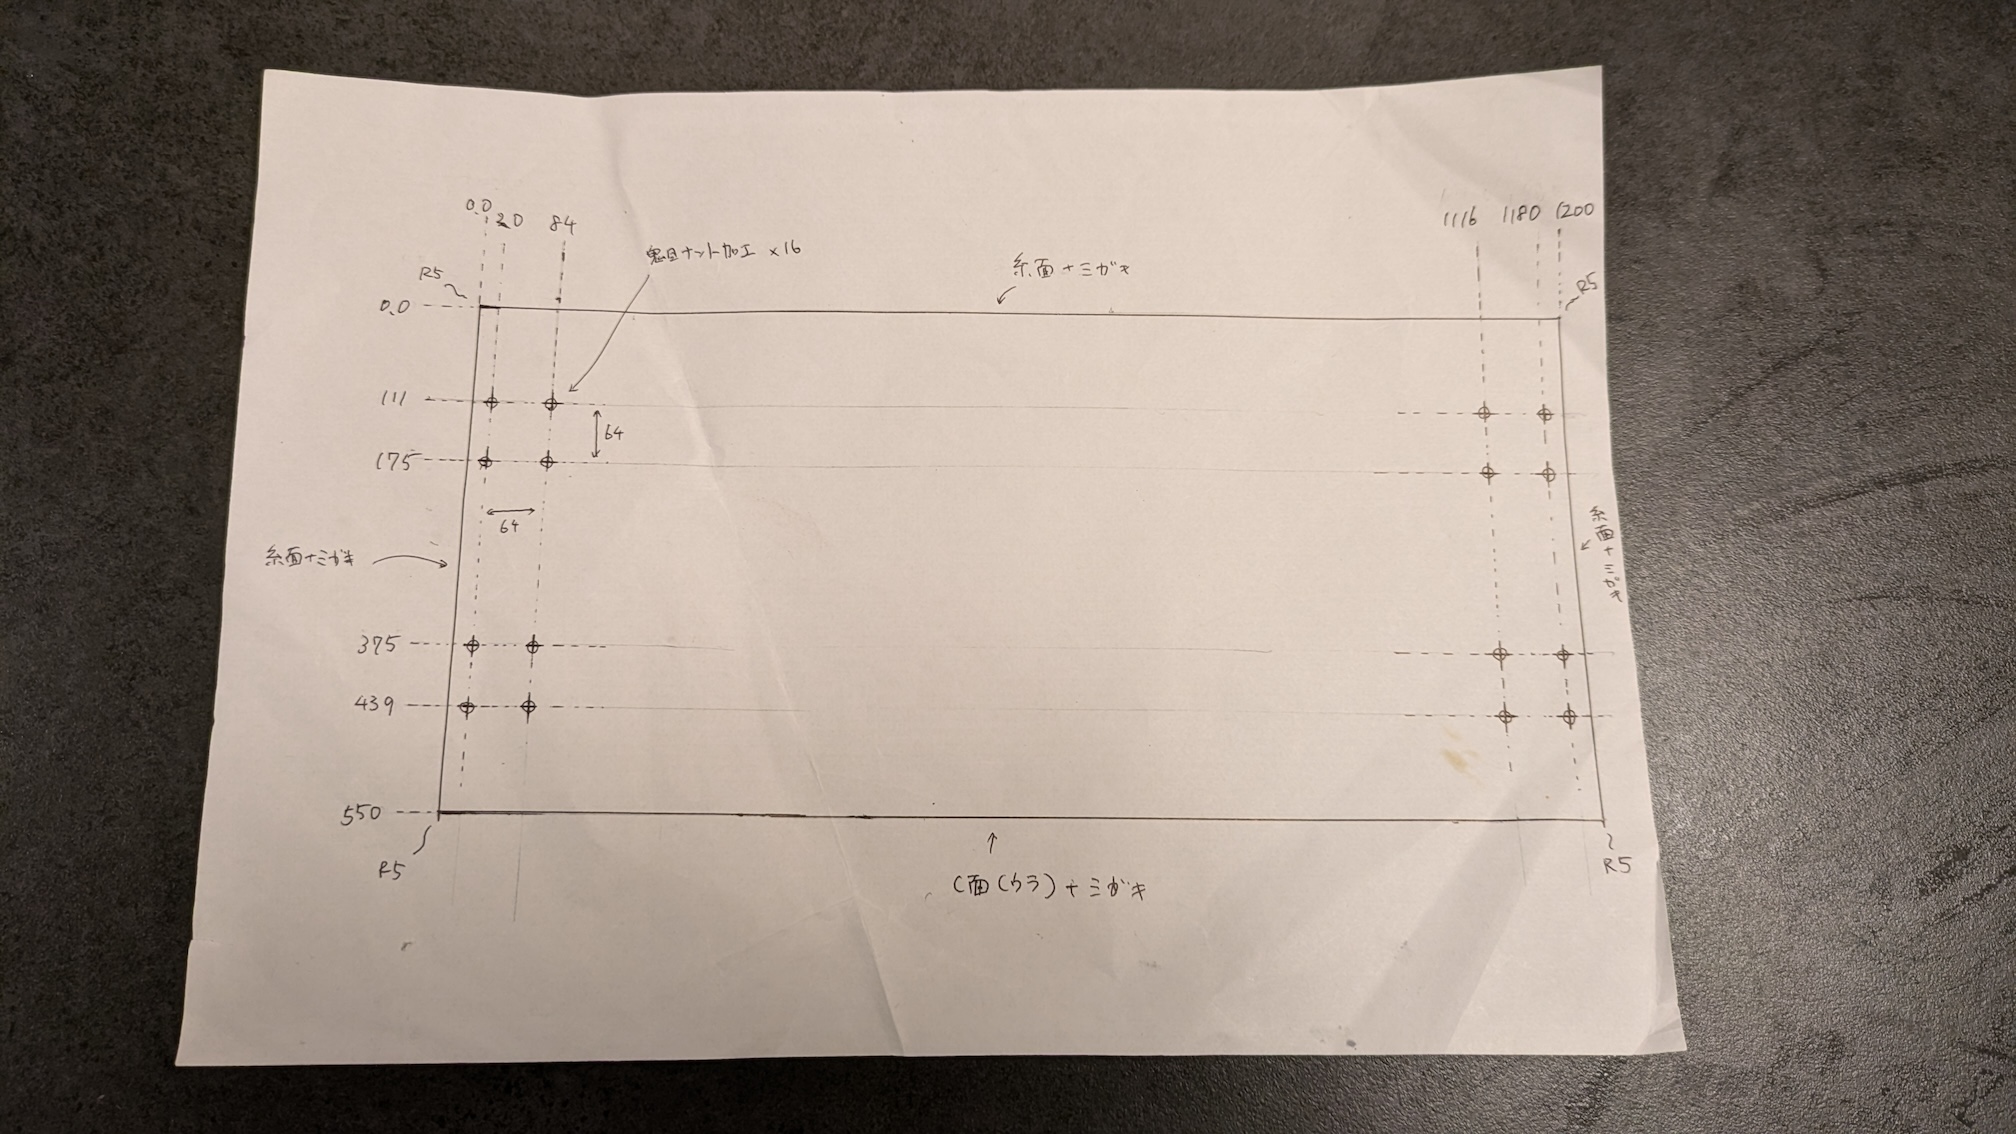 0.0
20
84
1116
1180
1200
R5
鬼目ナット加工 ×16
糸面+ミガキ
R5
0.0
111
64
175
64
糸面+ミガキ
糸面+ミガキ
375
439
550
R5
C面(ウラ)+ミガキ
R5